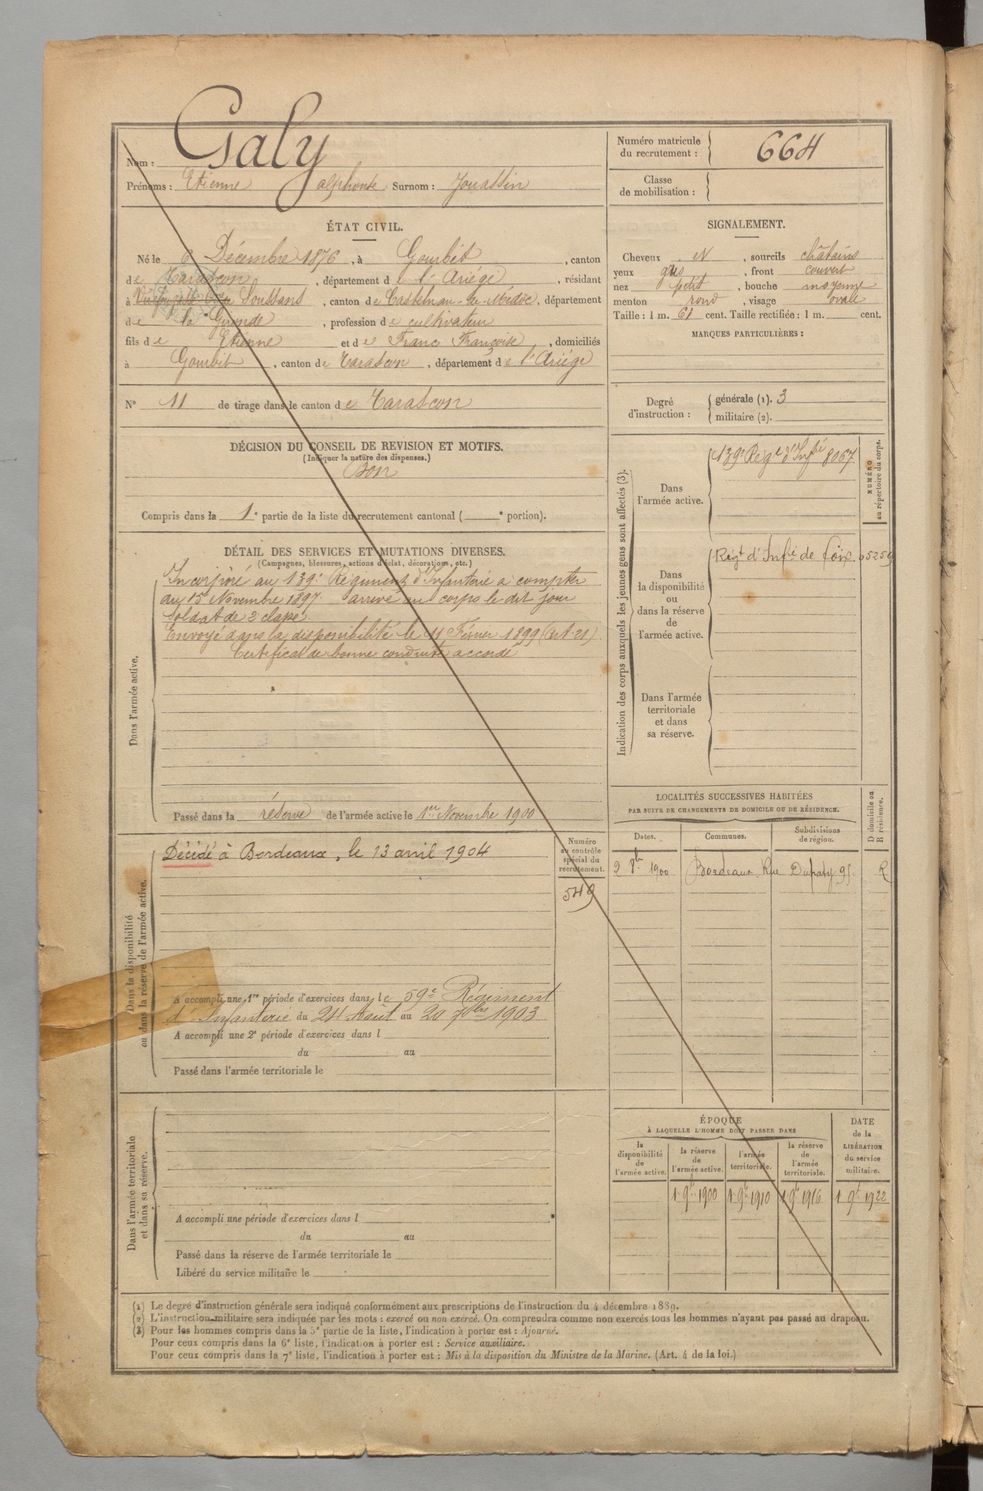 Nom : Galy
Prénoms : Etienne alphonse Surnom : Jouassin
ÉTAT CIVIL.
Né le 6 Décembre 1876, à Gourbit, canton
de Tarascon, département de l'Ariége, résidant
à Soussans, canton de Castelnau-de-Médoc, département
de la Gironde, profession de cultivateur
fils de Etienne et de Franc Françoise, domiciliés
à Gourbit, canton de Tarascon, département de l'Ariége
N° 11 de tirage dans le canton de Tarascon
DÉCISION DU CONSEIL DE REVISION ET MOTIFS.
(Indiquer la nature des dispenses.)
Bon
Compris dans la 1e partie de la liste du recrutement cantonal ( e portion).
DÉTAIL DES SERVICES ET MUTATIONS DIVERSES.
(Campagnes, blessures, actions d'éclat, décorations, etc.)
Dans l'armée active.
Incorporé au 139e Régiment d'Infanterie a compter
du 15 Novembre 1897 arrivé au corps le dit jour
soldat de 2e classe
Envoyé dans la disponibilité le 11 Février 1899 (art 21)
Certificat de bonne conduite accordé
Passé dans la réserve de l'armée active le 1er Novembre 1900
Dans la disponibilité
ou dans la réserve de l'armée active.
Décédé à Bordeaux, le 13 avril 1904
Numéro
au contrôle
spécial du
recrutement.
549
A accompli une 1re période d'exercices dans le 59e Régiment
d'Infanterie du 24 Août au 20 7bre 1903
A accompli une 2e période d'exercices dans l
du au
Passé dans l'armée territoriale le
Dans l'armée territoriale
et dans sa réserve.
A accompli une période d'exercices dans l
du au
Passé dans la réserve de l'armée territoriale le
Libéré du service militaire le
Numéro matricule
du recrutement : 664
Classe
de mobilisation :
SIGNALEMENT.
Cheveux N, sourcils châtains
yeux gris, front couvert
nez petit, bouche moyenne
menton rond, visage ovale
Taille : 1 m. 61 cent. Taille rectifiée : 1 m. cent.
MARQUES PARTICULIÈRES :
Degré
d'instruction :
générale (1). 3
militaire (2).
Indication des corps auxquels les jeunes gens sont affectés (3).
NUMÉRO
au répertoire du corps.
Dans
l'armée active.
139e Régt d'Infie 8067
Dans
la disponibilité
ou
dans la réserve
de
l'armée active.
Régt d'Infie de Foix 05259
Dans l'armée
territoriale
et dans
sa réserve.
LOCALITÉS SUCCESSIVES HABITÉES
PAR SUITE DE CHANGEMENTS DE DOMICILE OU DE RÉSIDENCE.
D domicile ou
R résidence.
Dates. Communes. Subdivisions
de région.
9 8bre 1900 Bordeaux, Rue Dupaty 95. R
ÉPOQUE
À LAQUELLE L'HOMME DOIT PASSER DANS
DATE
de la
LIBÉRATION
du service
militaire.
la
disponibilité
de
l'armée active.
la réserve
de
l'armée active.
l'armée
territoriale.
la réserve
de
l'armée
territoriale.
1 9bre 1900 1 9bre 1910 1 9bre 1916 1 9bre 1922
(1) Le degré d'instruction générale sera indiqué conformément aux prescriptions de l'instruction du 4 décembre 1889.
(2) L'instruction militaire sera indiquée par les mots : exercé ou non exercé. On comprendra comme non exercés tous les hommes n'ayant pas passé au drapeau.
(3) Pour les hommes compris dans la 5e partie de la liste, l'indication à porter est : Ajourné.
Pour ceux compris dans la 6e liste, l'indication à porter est : Service auxiliaire.
Pour ceux compris dans la 7e liste, l'indication à porter est : Mis à la disposition du Ministre de la Marine. (Art. 4 de la loi.)